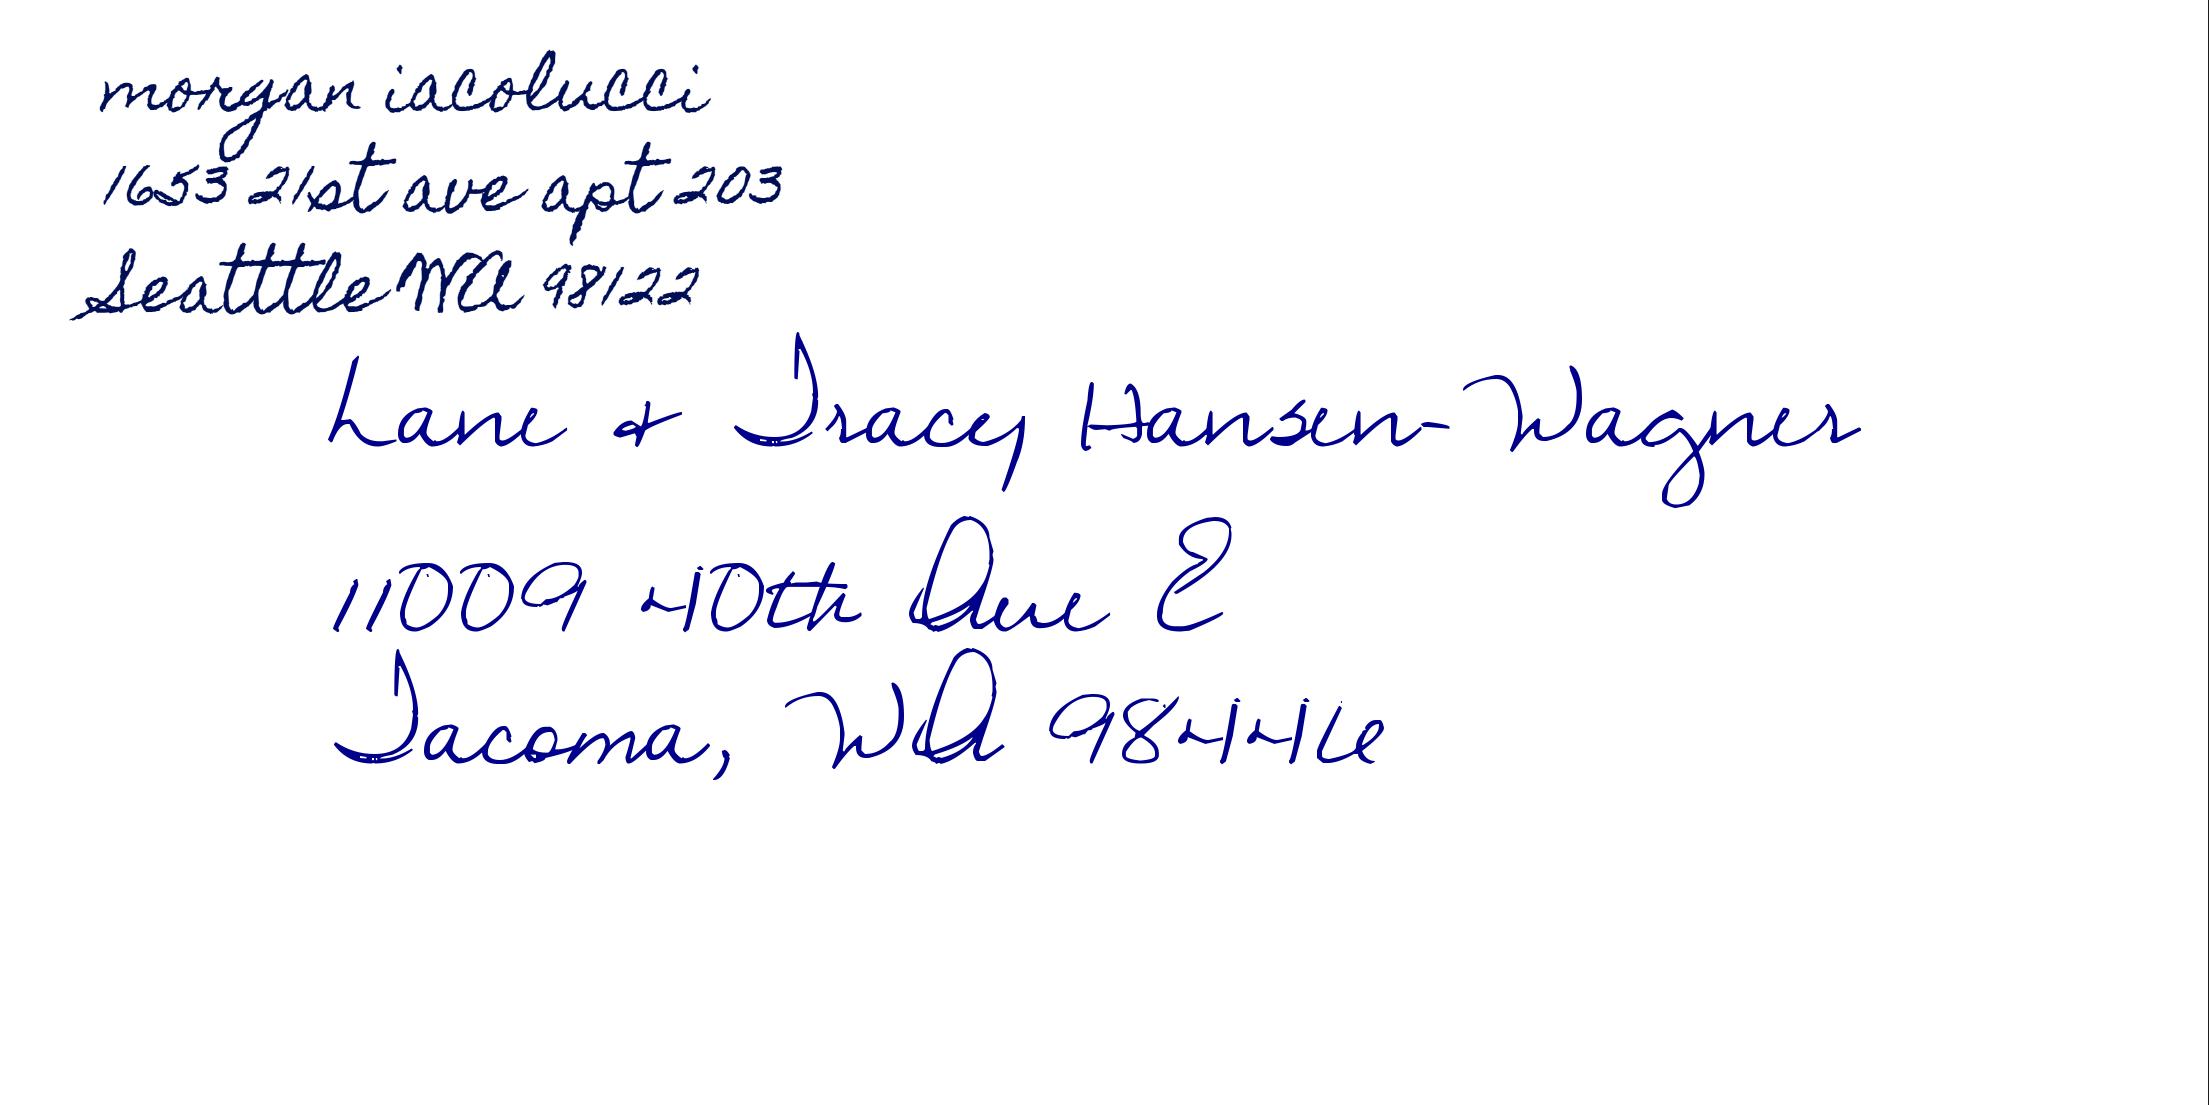 morgan iacolucci
1653 21st ave apt 203
Seatttle WA 98122
Lane & Tracy Hansen-Wagner
11009 40th Ave E
Tacoma, WA 98446